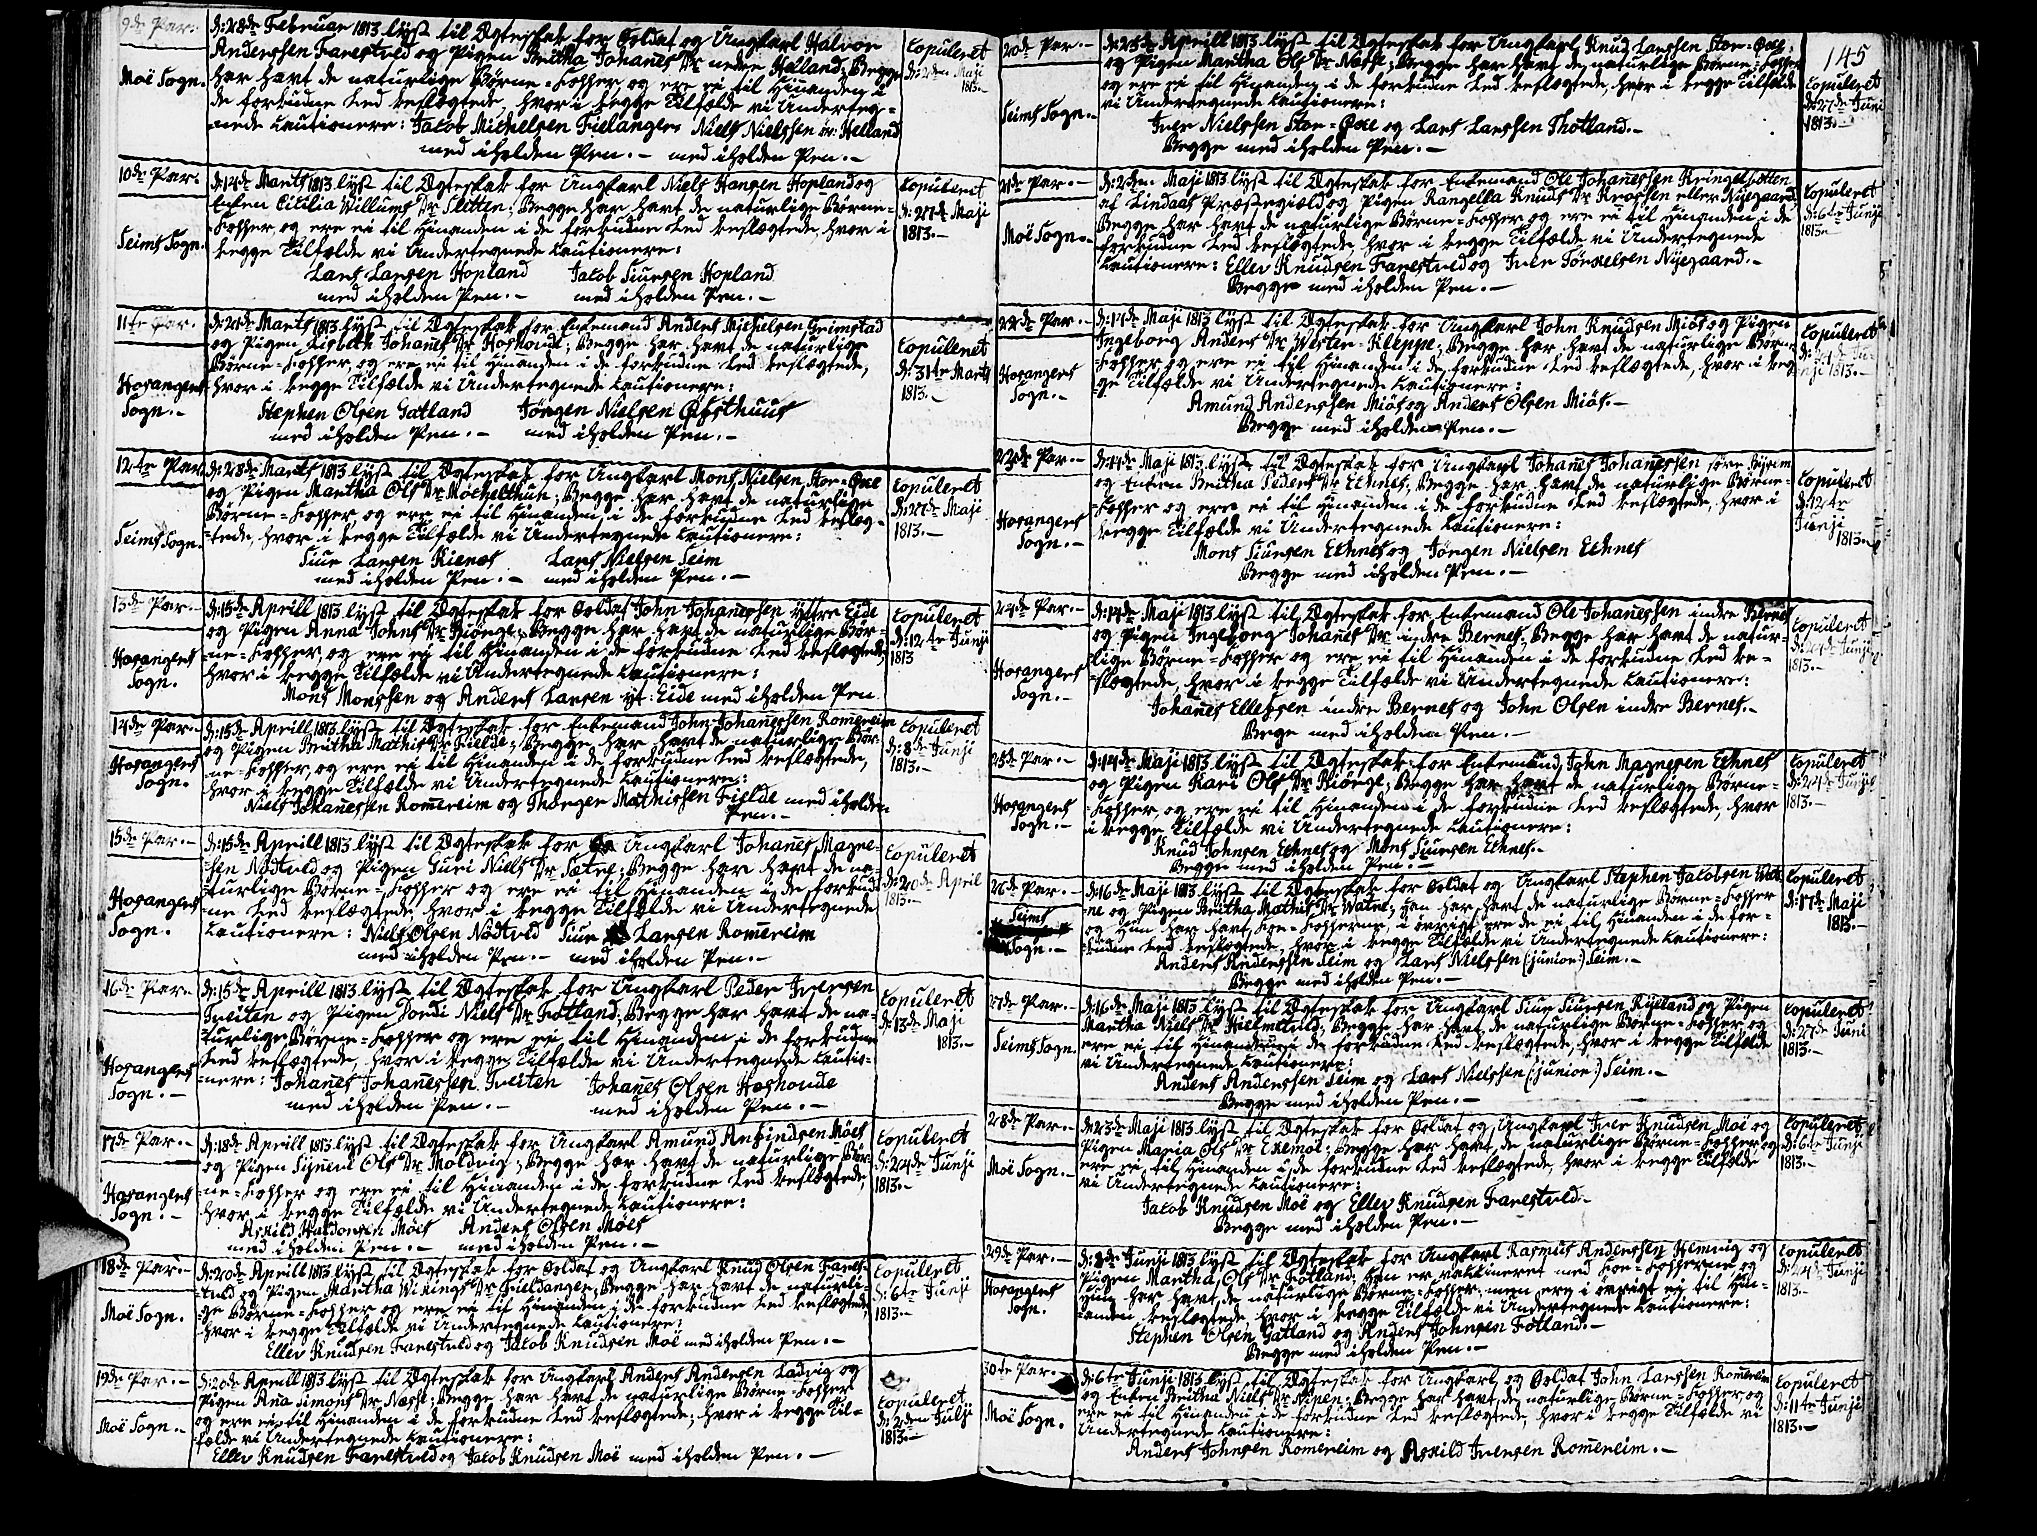 9de Par.
Moë Sogn.
d: 28de Februar 1813 lyst til Ægteskab for Soldat og Ungkarl Halvor
Anderssen Farestved og Pigen Britha Johanes Dr nedre Helland; Begge
har havt de naturlige Børne-Kopper og ere ei til Hinanden i
de forbudne Led beslægtede, hvor i begge Tilfælde vi Underteg-
-nede Cautionere: Jacob Michelsen Fielanger Niels Nielssen ør: Helland
med iholden Pen. - med iholden Pen. -
Copuleret
d: 2den Maji
1813.-
10de Par.
Seims Sogn.
d: 14de Marts 1813 lyst til Ægteskab for Ungkarl Niels Hansen Hopland og
Enken Cicilia Willums Dr Sletten; Begge har havt de naturlige Børne-
-Kopper, og ere ei til Hinanden i de forbudne Led beslægtede, hvor i
begge Tilfælde vi Undertegnede Cautionere:
Lars Larsen Hopland Jacob Siursen Hopland
med iholden Pen. - med iholden Pen. -
Copuleret
d: 27de Maji
1813.-
11te Par.
Hosangers
Sogn.-
d: 21de Marts 1813 lyst til Ægteskab for Enkemand Anders Michelsen Grimstad
og Pigen Lisbeth Johanes Dr Hoshovde; Begge har havt de naturlige
Børne-Kopper, og ere ei til Hinanden i de forbudne Led beslægtede,
hvor i begge Tilfælde vi Undertegnede Cautionere:
Stephen Olsen Gatland Jörgen Nielsen Røsthuus
med iholden Pen. - med iholden Pen. -
Copuleret
d: 31te Marts
1813.-
12te Par.
Seims Sogn.
d: 28de Marts 1813 lyst til Ægteskab for Ungkarl Mons Nielsen Stor-Oxe
og Pigen Martha Ols Dr Mockelthun; Begge har havt de naturlige
Børne-Kopper, og ere ei til Hinanden i de forbudne Led beslæg-
-tede, hvor i begge Tilfælde vi Undertegnede Cautionere:
Siur Larsen Kienes Lars Nielsen Seim
med iholden Pen. - med iholden Pen. -
Copuleret
d: 27de Maji
1813.-
13de Par.-
Hosangers
Sogn.
d: 15de Aprill 1813 lyst til Ægteskab for Soldat John Johanessen yttre Eide
og Pigen Anna Johns Dr Biörge; Begge har havt de naturlige Bør-
-ne-Kopper, og ere ei til Hinanden i de forbudne Led beslægtede,
hvor i begge Tilfælde vi Undertegnede Cautionere:
Mons Monssen og Anders Larsen yt: Eide med iholden Pen.
Copuleret
d: 12te Junji
1813
14de Par.-
Hosangers
Sogn.
d: 15de Aprill 1813 lyst til Ægteskab for Enkemand John Johanessen Romereim
og Pigen Britha Mathis Dr Fielde; Begge har havt de naturlige Bør-
-ne-Kopper, og ere ei til Hinanden i de forbudne Led beslægtede,
hvor i begge Tilfælde vi Undertegnede Cautionere:
Niels Johanessen Romereim og Thorger Mathissen Fielde med iholden
Pen.-
Copuleret
d: 8de Junji
1813.-
15de Par.-
Hosangers
Sogn.
d: 15de Aprill 1813 lyst til Ægteskab for Ungkarl Johanes Magne-
-sen Nødtved og Pigen Guri Niels Dr Sætre; Begge har havt de na-
-turlige Børne-Kopper og ere ei til Hinanden i de forbud-
-ne Led beslægtede, hvor i begge Tilfælde vi Undertegnede
Cautionere: Niels Olsen Nødtved Siur Larsen Romereim
med iholden Pen.- med iholden Pen.-
Copuleret
d: 20de April
1813.-
16de Par.-
Hosangers
Sogn.-
d: 15de Aprill 1813 lyst til Ægteskab for Ungkarl Peder Iversen
Tveiten og Pigen Dordi Niels Dr Fotland; Begge har havt de na-
-turlige Børne-Kopper og ere ei til Hinanden i de forbudne
Led beslægtede, hvor i begge Tilfælde vi Undertegnede Cautio-
-nere: Johanes Johanessen Tveiten Johanes Olsen Hoshovde
med iholden Pen.- med iholden Pen.-
Copuleret
d: 13de Maji
1813.-
17de Par.-
Hosangers
Sogn.-
d: 18de Aprill 1813 lyst til Ægteskab for Ungkarl Amund Ankindsen Möes
og Pigen Signeni Ols Dr Moldvig; Begge har havt de naturlige Bør-
-ne-Kopper og ere ei til Hinanden i de forbudne Led beslægtede,
hvor i begge Tilfælde vi Undertegnede Cautionere:
Askild Haldorsen Möes Anders Olsen Möes
med iholden Pen.- med iholden Pen.-
Copuleret
d: 24de Junji
1813.-
18de Par.-
Moë Sogn.
d: 20de Aprill 1813 lyst til Ægteskab for Soldat og Ungkarl Knud Olsen Fares-
-tved og Pigen Martha Wikings Dr Fieldanger; Begge har havt de naturli-
-ge Børne-Kopper og ere ei til Hinanden i de forbudne Led beslægtede,
hvor i begge Tilfælde vi Undertegnede Cautionere:
Ellev Knudsen Farestved og Jacob Knudsen Moë med iholden Pen.-
Copuleret
d: 6te Junji
1813.-
19de Par.-
Moë Sogn.-
d: 20de Aprill 1813 lyst til Ægteskab for Ungkarl Anders Andersen Ladvig og
Pigen Ana Simons Dr Næsse; Begge har havt de naturlige Børne-Kopper
og ere ei til Hinanden i de forbudne Led beslægtede, hvor i begge Til-
-fælde vi Undertegnede Cautionere:
Ellev Knudsen Farestved og Jacob Knudsen Moë med iholden Pen.-
Copuleret
d: 2den Julji
1813.-
145
20de Par.-
Seims Sogn.-
d: 25de Aprill 1813 lyst til Ægteskab for Ungkarl Knud Larssen Stor-Oxe
og Pigen Martha Ols Dr Nøsse; Begge har havt de naturlige Børne-Kopper
og ere ei til Hinanden i de forbudne Led beslægtede, hvor i begge Tilfælde
vi Undertegnede Cautionere:
Iver Nielssen Stor-Oxe og Lars Larssen Thotland.-
Begge med iholden Pen.-
Copuleret
d: 27de Juni
1813.-
21de Par.-
Moë Sogn.-
d: 2den Maji 1813 lyst til Ægteskab for Enkemand Ole Johanessen Kringelsætten
af Lindaas Præstegield og Pigen Rangella Knuds Dr Knossen eller Nyegaard
Begge har havt de naturlige Børne-Kopper og ere ei til Hinanden i de
forbudne Led beslægtede, hvor i begge Tilfælde vi Undertegnede
Cautionere: Ellev Knudsen Farestved og Iver Törkelsen Nyegaard.-
Begge med iholden Pen.-
Copuleret
d: 6te Junji
1813.-
22de Par.-
Hosangers
Sogn.-
d: 14de Maji 1813 lyst til Ægteskab for Ungkarl John Knudsen Miös og Pigen
Ingeborg Anders Dr Wester-Kleppe; Begge har havt de naturlige Børne-
-Kopper, og ere ei til Hinanden i de forbudne Led beslægtede, hvor i beg-
-ge Tilfælde vi Undertegnede Cautionere:
Amund Anderssen Miös og Anders Olsen Miös.-
Begge med iholden Pen.-
Copuleret
1813.-
23de Par.-
Hosangers
Sogn.-
d: 14de Maji 1813 lyst til Ægteskab for Ungkarl Johanes Johanessen
og Enken Britha Peders Dr Eknes; Begge har havt de naturlige Børne-
-Kopper og ere ei til Hinanden i de forbudne Led beslægtede, hvor i
begge Tilfælde vi Undertegnede Cautionere:
Mons Siursen Eknes og Jörgen Nielsen Eknes
Begge med iholden Pen.-
Copuleret
d: 12te
Junji
1813.-
24de Par.-
Hosangers
Sogn.-
d: 14de Maji 1813 lyst til Ægteskab for Enkemand Ole Johanessen indre Bernes
og Pigen Ingeborg Johanes Dr indre Bernes; Begge har havt de natur-
-lige Børne-Kopper og ere ei til Hinanden i de forbudne Led be-
-slægtede, hvor i begge Tilfælde vi Undertegnede Cautionere:
Johanes Ellefsen indre Bernes og John Olsen indre Bernes.-
Bege med iholden Pen.-
Copuleret
d: 24de Junji
1813.-
25de Par.-
Hosangers
Sogn.-
d: 14de Maji 1813 lyst til Ægteskab for Enkemand John Magnesen Eknes
og Pigen Kari Ols Dr Biörge; Begge har havt de naturlige Børne-
-Kopper, og ere ei til Hinanden i de forbudne Led beslægtede, hvor
i begge Tilfælde vi Undertegnede Cautionere:
Knud Johnsen Eknes og Mons Siursen Eknes.-
Begge med iholden Pen.-
Copuleret
d: 24de Junji
1813.-
26de Par.-
Seims
Sogn.-
d: 16de Maji 1813 lyst til Ægteskab for Soldat og Ungkarl Stephen Jacobsen Wat-
-ne og Pigen Britha Mathis Dr Watne; Han har havt de naturlige Børne-Kopper
og Hun har havt Koe-Kopperne, i øvrigt ere de ei til Hinanden i de for-
-budne Led beslægtede, hvor i begge Tilfælde vi Undertegnede Cautionere:
Anders Anderssen Seim og Lars Nielssen (junior:) Seim.-
Begge med iholden Pen.-
Copuleret
d: 17de Maji
1813.-
27de Par.-
Seims Sogn.
d: 16de Maji 1813 lyst til Ægteskab for Ungkarl Siur Siursen Rylland og Pigen
Martha Niels Dr Hielmtved; Begge har havt de naturlige Børne-Kopper og
ere ei til Hinanden i de forbudne Led beslægtede, hvor i begge Tilfælde
vi Undertegnede Cautionere:
Anders Anderssen Seim og Lars Nielssen (:junior:) Seim.-
Begge med iholden Pen.-
Copuleret
d: 27de Juni
1813.-
28de Par.-
Moë Sogn.-
d: 23de Maji 1813 lyst til Ægteskab for Soldat og Ungkarl Iver Knudsen Moë og
Pigen Maria Ols Dr Exemoe; Begge har havt de naturlige Børne-Kopper, og
ere ei til Hinanden i de forbudne Led beslægtede, hvor i begge Tilfælde
vi Undertegnede Cautionere:
Jacob Knudsen Moë og Ellev Knudsen Farestved.-
Begge med iholden Pen.-
Copuleret
d: 6te Junji
1813.-
29de Par.-
Hosangers
Sogn.
d: 2de Junji 1813 lyst til Ægteskab for Ungkarl Rasmus Anderssen Hemnig og
Pigen Martha Ols Dr Fotland; Han er vaksineret med Koe-Kopperne og
Hun har havt de naturlige Børne-Kopper, men ere i øvrigt ei til Hin-
-anden beslægtede, hvor i begge Tilfælde vi Undertegnede Cautionere:
Stephen Olsen Gatland og Anders Johnsen Fotland.-
Begge med iholden Pen.-
Copuleret
d: 24de Junji
1813.-
30te Par.-
Moë Sogn.-
d: 6te Junji 1813 lyst til Ægteskab for Ungkarl og Soldat John Larssen Romereim
og Enken Britha Niels Dr Nipen; Begge har havt de naturlige Børne-Kopper og
ere ei til Hinanden i de forbudne Led beslægtede, hvor i begge Tilfælde vi
Undertegnede Cautionere:
Anders Johnsen Romereim og Askild Iversen Romereim.-
Copuleret
d: 11te Junji
1813.-